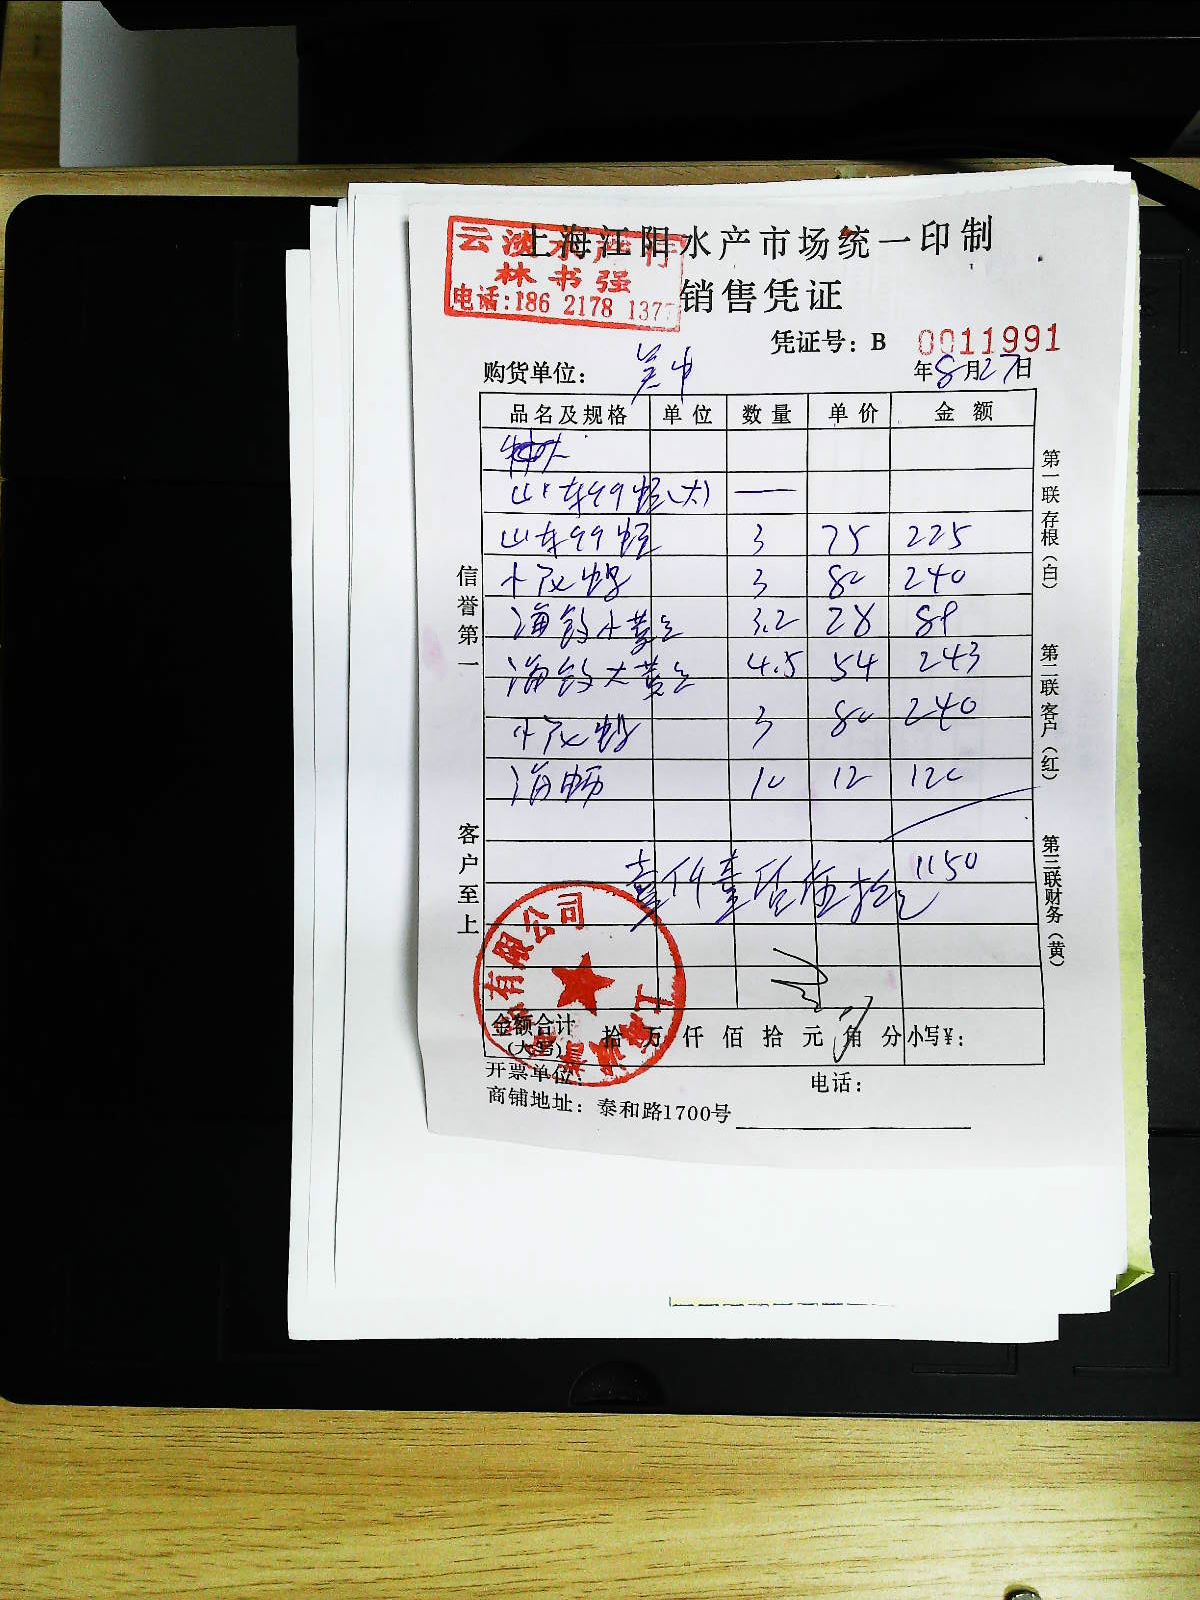 上海江阳水产市场统一印制
云波水产行
林书强
电话:186 2178 1377
销售凭证
凭证号: B 0011991
购货单位: 吴中
年8月27日
品名及规格 单位 数量 单价 金额
山东99蛏(大) —
山东99蛏 3 75 225
3 80 240
3.2 28 89
4.5 54 243
3 80 240
10 12 120
1150
壹仟壹佰伍拾元
金额合计
(大写)
拾 万 仟 佰 拾 元 角 分 小写¥:
开票单位:
电话:
商铺地址: 泰和路1700号
信誉第一
客户至上
第一联 存根(白)
第二联 客户(红)
第三联 财务(黄)
有限公司
上海